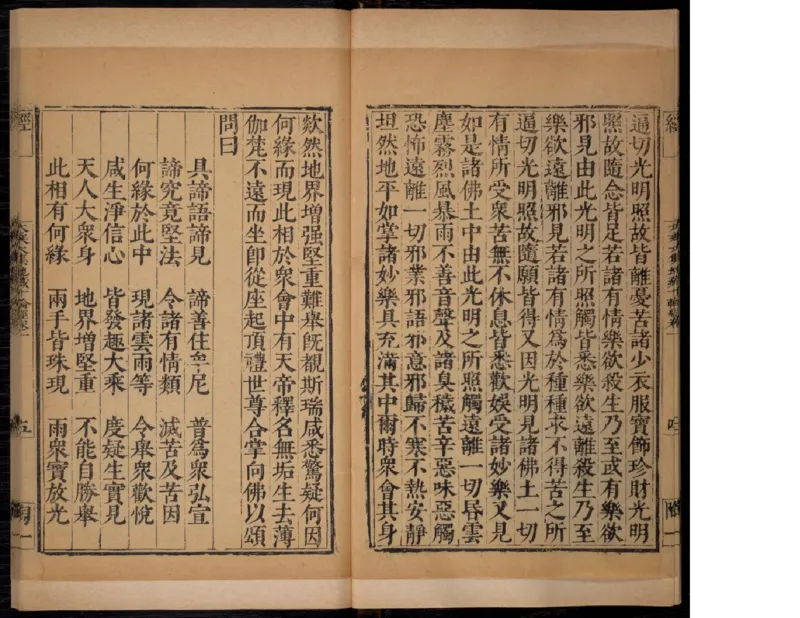 逼切光明照故皆離憂苦諸少衣服寶飾珍財光明
照故隨念皆足若諸有情樂欲殺生乃至或有樂欲
邪見由此光明之所照觸皆悉樂欲遠離殺生乃至
樂欲遠離邪見若諸有情爲於種種求不得苦之所
逼切光明照故隨願皆得又因光明見諸佛土一切
有情所受衆苦無不休息皆悉歡娛受諸妙樂又見
如是諸佛土中由此光明之所照觸遠離一切昏雲
塵霧烈風暴雨不善音聲及諸臭穢苦辛惡味惡觸
恐怖遠離一切邪業邪語邪意邪歸不寒不熱安靜
坦然地平如掌諸妙樂具充滿其中爾時衆會其身
欻然地界增强堅重難舉旣覩斯瑞咸悉驚疑何因
何緣而現此相於衆會中有天帝釋名無垢生去薄
伽梵不遠而坐卽從座起頂禮世尊合掌向佛以頌
問曰
具諦語諦見　諦善住牟尼　普爲衆弘宣
諦究竟堅法　令諸有情類　滅苦及苦因
何緣於此中　現諸雲雨等　令舉衆歡悅
咸生淨信心　皆發趣大乘　度疑生實見
天人大衆身　地界增堅重　不能自勝舉
此相有何緣　兩手皆珠現　雨衆寶放光
經
五